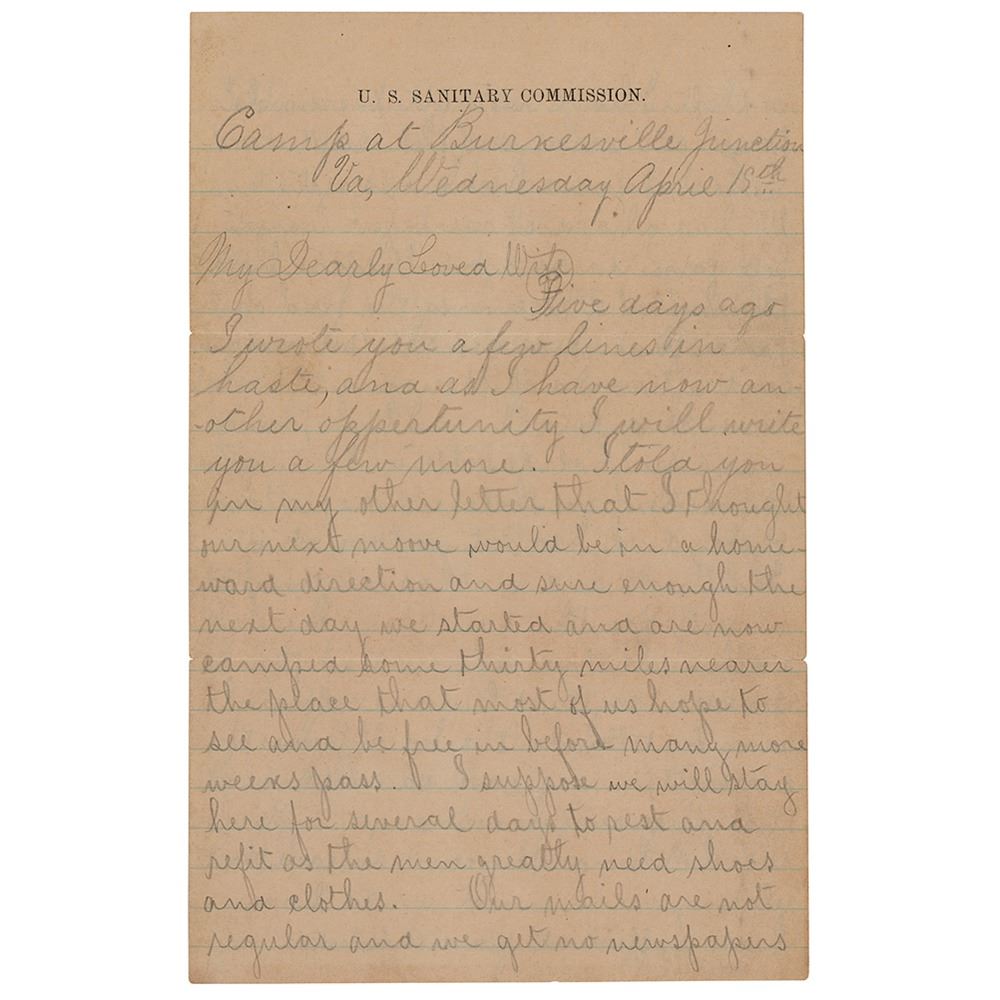 U. S. SANITARY COMMISSION.
Camp at Burkesville Junction
Va, Wednesday April 19th
My Dearly Loved Wife
Five days ago
I wrote you a few lines in
haste, and as I have now an-
-other oppertunity I will write
you a few more. I told you
in my other letter that I thought
our next moove would be in a home-
ward direction and sure enough the
next day we started and are now
camped some thirty miles nearer
the place that most of us hope to
see and be free in before many more
weeks pass. I suppose we will stay
here for several days to rest and
refit as the men greatly need shoes
and clothes. Our mails are not
regular and we get no newspapers